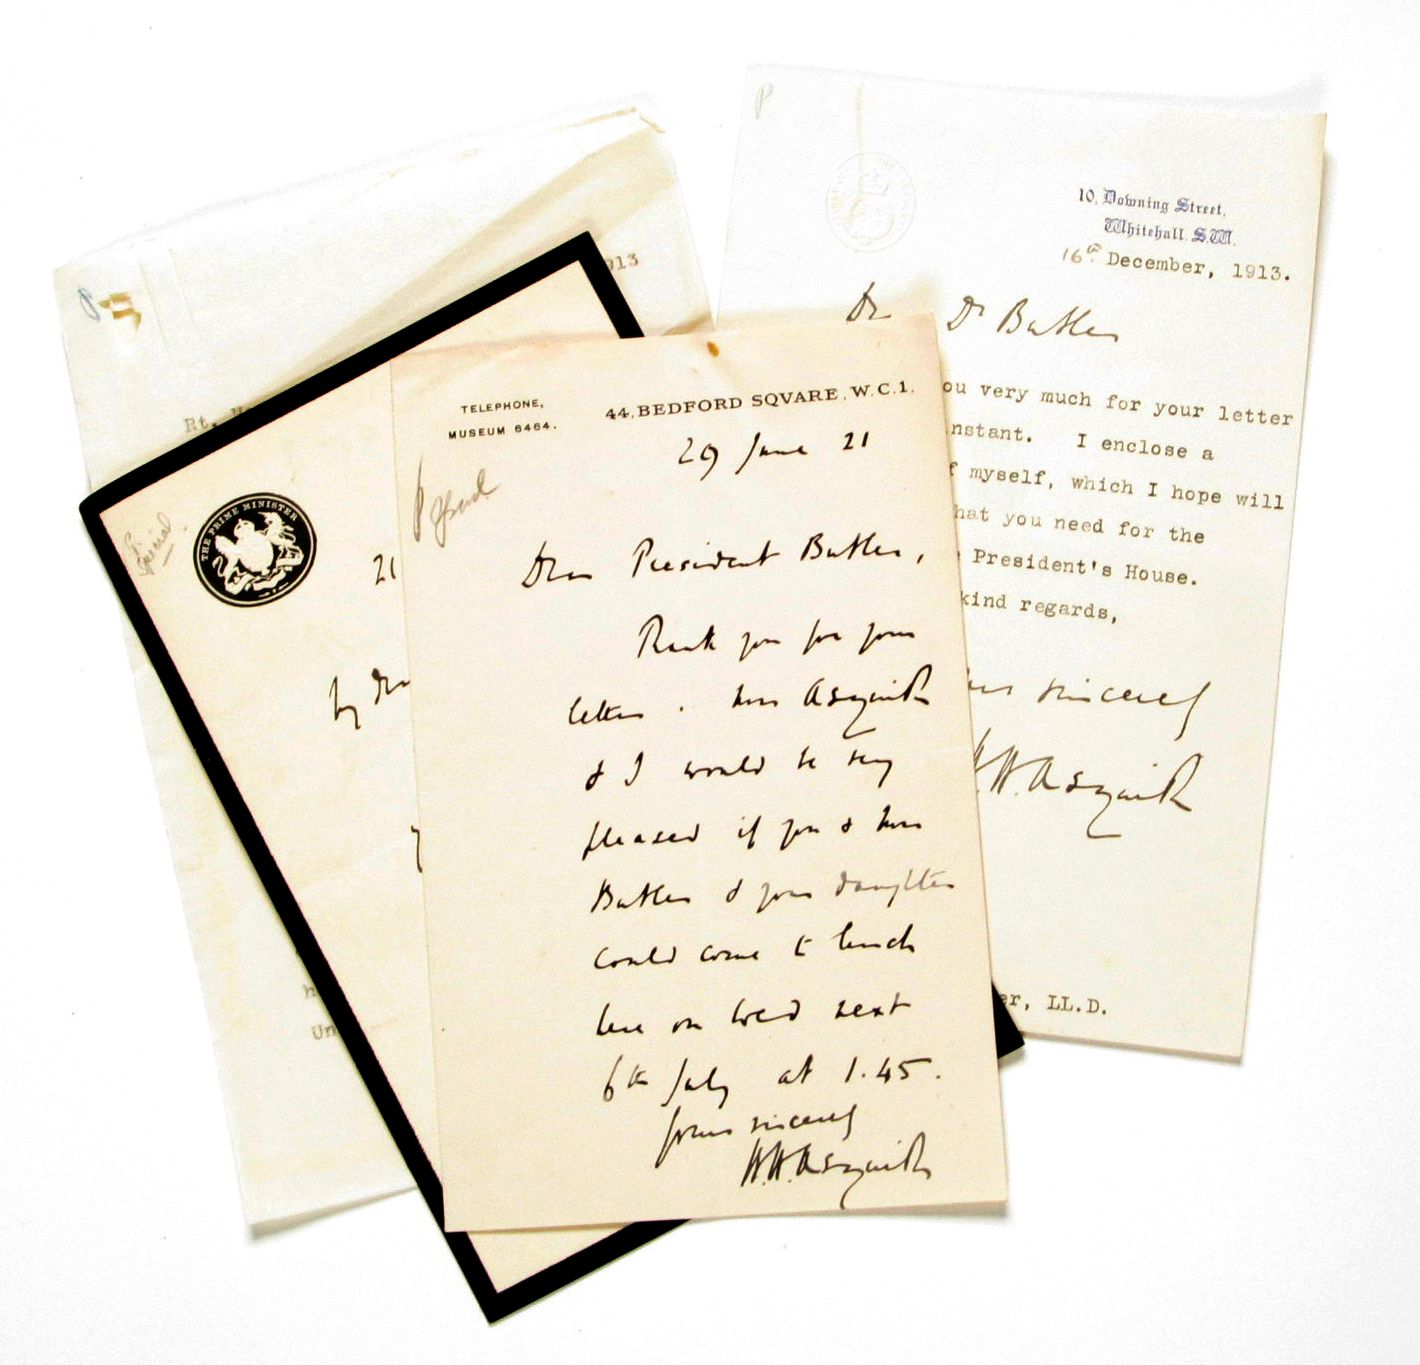 1913
Rt.
THE PRIME MINISTER
21
My dear
h
Un
TELEPHONE,
MUSEUM 6464.
44, BEDFORD SQVARE, W.C.1.
29 June 21
Dear President Butler,
Thank you for your
letter. Mrs Asquith
& I would be very
pleased if you & Mrs
Butler & your daughter
could come to lunch
here on Wed next
6th July at 1.45.
Yours sincerely
H.H.Asquith
P
10, Downing Street,
Whitehall. S.W.
16th December, 1913.
Dr Dr Butler
ou very much for your letter
nstant. I enclose a
f myself, which I hope will
hat you need for the
President's House.
kind regards,
sincerely
H.H.Asquith
er, LL.D.